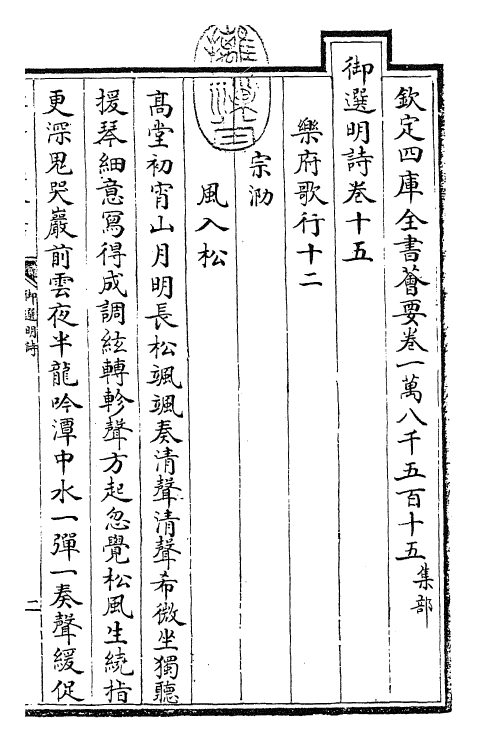 欽定四庫全書薈要卷一萬八千五百十五 集部
御選明詩卷十五
樂府歌行十二
宗泐
風入松
高堂初宵山月明長松颯颯奏清聲清聲希微坐獨聽
援琴細意寫得成調絃轉軫聲方起忽覺松風生繞指
更深鬼哭巖前雲夜半龍吟潭中水一彈一奏聲緩促
御選明詩